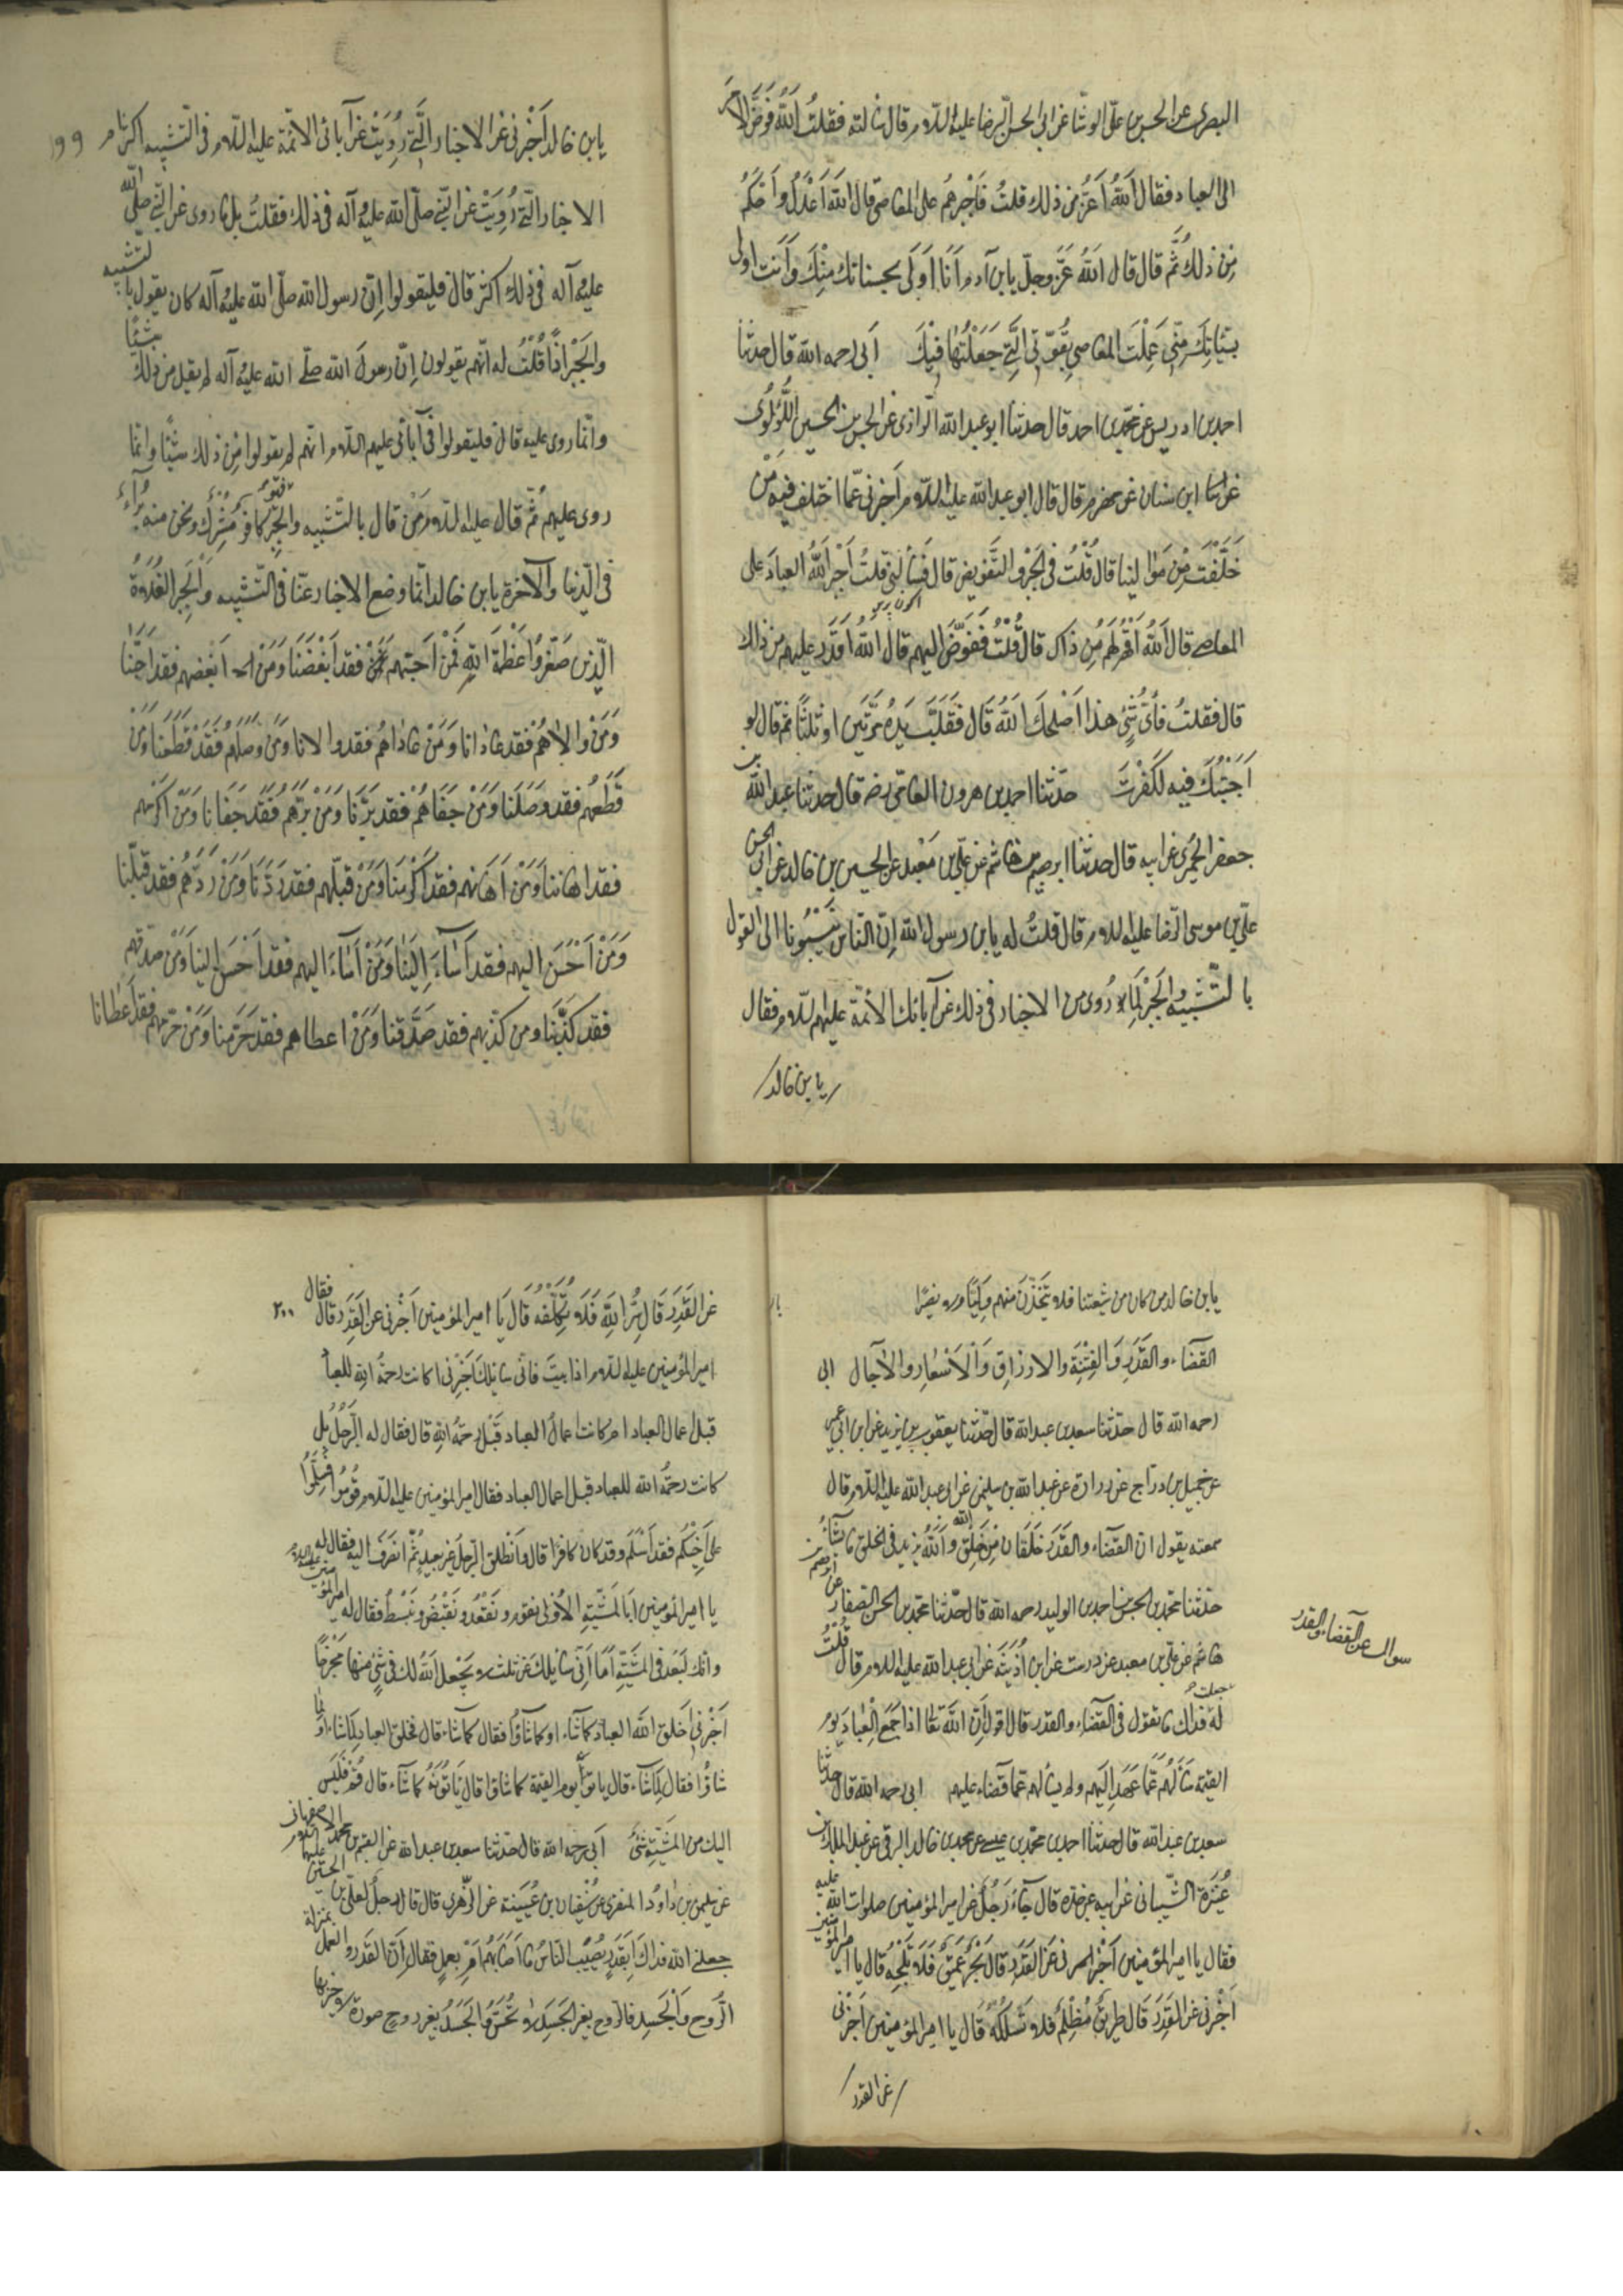 البصرى عن الحسن بن على الوشا عن ابى الحسن الرضا عليه السلام قال سالته فقلت اَللهُ فَوَّضَ الامرَ
الى العباد فقال اَللهُ اَعَزُّ من ذلك قلتُ فَاَجْبَرهُم على المعاصى قال اَللهُ اَعْدَلُ واَحْكَمُ
مِن ذلك ثُمَّ قال قال اَللهُ عَزَّ وجلّ يابن آدم اَنَا اَوْلَى بحسناتك مِنْكَ وَاَنت اولى
بسَيّئاتِكَ مِنّى عَمِلْتَ المعاصى بِقُوّتى الَّتى جَعَلْتُها فِيْكَ ابى رحمه الله قال حدثنا
احمد بن ادريس عن محمد بن احمد قال حدثنا ابو عبد الله الرازى عن الحسن بن الحسين اللُّؤلُؤى
عن ابن سنان عن مهزم قال قال ابو عبد الله عليه السلام اَخبرنى عمّا اختلف فيه مَنْ
خَلَّفْتَ مِنْ مَوالينا قال قُلْتُ فى الجَبْر والتَّفويض قال فَسَألنى قلتُ اَجْبَرَ اللهُ العبادَ على
المعاصى قال اَللهُ اَقْهَرُ لهم مِن ذاك قال قُلْتُ فَفَوَّضَ اليهم قال اَللهُ اَقْدَر عليهم من ذلك
قال فقلتُ فأىُّ شَئٍ هذا اَصْلحَكَ اللهُ قَال فَقَلَبَّ يَدَهُ مَرَّتَين او ثلثًا ثم قال لو
اَجَبْتُكَ فيه لَكَفَرْتَ حدثنا احمد بن هرون الفامى رضه قال حدثنا عبد الله بن
جعفر الحميرى عن ابيه قال حدثنا ابرهيم بن هاشم عن على بن مَعْبد عن الحسين بن خالد عن ابى الحسن
على بن موسى الرضا عليه السلام قال قلتُ له يابن رسول الله اِنّ الناس يَنسُبُونا الى القول
بالتّشبيه والجَبْر لِمَا رُوى من الاخبار فى ذلك عن آبائك الأئمّة عليهم السلام فقال
يابن خالد
١٩٩
يابن خالد اَخْبِرنى عن الاخبار الَّتى رُوِيَتْ عن آبائى الائمّة عليهم السلام فى التشبيه اكثر ام
الاخبار الّتى رُوِيَتْ عن النبى صلّى الله عليه وآله فى ذلك فقلتُ بل ما روى عن النبى صلّى الله
عليه وآله فى ذلك اكثر قال فليقولوا اِنّ رسول الله صلّى الله عليه وآله كان يقول بالتشبيه
والجَبْر اذًا قُلْتُ له انّهم يقولون اِنّ رسولَ الله صلّى الله عليه وآله لم يقل من ذلك شيئًا
وانّما روى عليه قال فليقولوا فى آبائى عليهم السلام انّهم لم يقولوا مِن ذلك شيئًا وانّما
روى عليهم ثمّ قال عليه السلام مَنْ قال بالتشبيه والجَبْر فهو كافرٌ مُشْرِكٌ ونحن منه بُرَآءُ
فى الدّنيا والآخرة يابن خالد انّما وضع الاخبار عنّا فى التّشبيه وَالجَبْر الغُلَاةُ
الّذين صَغَّروُا عَظَمَةَ اللهِ فَمَنْ اَحَبّهم فقد اَبْغَضَنَا وَمَنْ ابغضهم فقد اَحَبَّنا
وَمَنْ وَالاهُمْ فقد عادانا وَمَنْ عاداهُم فقد والانا وَمَنْ وَصَلَهُمْ فَقَدْ قَطَعَنا وَمَنْ
قَطَعَهُم فقد وَصَلَنا وَمَنْ جَفَاهُمْ فقد بَرَّنَا وَمَنْ بَرّهُم فَقَد جَفَانا وَمَنْ اَكْرَمَهم
فقد اهاننا وَمَن اَهانهم فقد اَكْرَمَنَا وَمَنْ قَبِلَهم فقد رَدَّنَا وَمَنْ رَدَّهُم فقد قَبِلَنا
وَمَنْ اَحْسَنَ اليهم فقد اَسَاءَ اِلَيْنا وَمَنْ اَسَاءَ اليهم فقد اَحْسَنَ الينا وَمَنْ صدّقهم
فقد كذّبَنا ومن كذّبهم فقد صَدَّقنا وَمَنْ اعطاهم فقد حَرَمنا وَمَنْ حَرَمهم فقد اَعطانا
يابن خالد من كان من شيعتنا فلا يَتَّخِذَنَّ منهم وَلِيًّا ولا نصيرًا
القضاء والقَدَرِ وَالفِتْنَةِ والارزاق وَالاَسْعارِ والآجال ابى
رحمه الله قال حدثنا سعد بن عبد الله قال حدّثنا يعقوب بن يزيد عن ابن ابى عمير
عن جميل بن دراج عن زرارة عن عبد الله بن سليمن عن ابى عبد الله عليه السلام قال
سمعته يقول ان القضاء والقَدَر خَلقَان مِن خَلْقِ الله وَاَللهُ يزيد فى الخلق ما يشاءُ
حدثنا محمد بن الحسن بن احمد بن الوليد رحمه الله قال حدّثنا محمد بن الحسن الصفار عن ابرهيم بن
هاشم عن على بن معبد عن درست عن ابن اُذَيْنَة عن ابى عبد الله عليه السلام قال قُلْتُ
له جعلت فداك ما تقول فى القضاء والقدر قال اقول اِنّ اللهَ تعا اذا جَمَعَ العِبادَ يوم
القيمة سَاَلَهُم عَمّا عَهِدَ اليهم ولم يسألهم عمّا قضاء عليهم ابى رحمه الله قال حدثنا
سعد بن عبد الله قال حدثنا احمد بن محمد بن عيسى عن محمد بن خالد البرقى عن عبد الملك بن
عُنتَرة الشَّيبانى عن ابيه عن جده قال جاءَ رَجُلٌ عن امير المؤمنين صلوات الله عليه
فقال يا امير المؤمنين اَخْبِرنى عن القَدَرِ قال بَحْرٌ عَمِيقٌ فَلَا تَلِجْهُ قال يا امير المؤمنين
اَخْبِرنى عن القَدَرِ قال طريقٌ مُظْلِمٌ فلا تَسْلُكْهُ قال يا امير المؤمنين اَخْبِرنى
عن القدر
سوال عن القضاء والقدر
٢٠٠
عن القَدَرِ قال سِرُّ اللهِ فَلَا تَكَلَّفْهُ قال يَا امير المؤمنين اَخْبِرنى عن القَدَرِ قال فقال
امير المؤمنين عليه السلام اذا ابيتَ فانى سائلك اَخْبِرنى اكانت رحمةُ اللهِ للعباد
قبل اعمال العباد ام كانت اعمالُ العباد قَبْلَ رحمة الله قال فقال له الرّجلُ بل
كانت رحمةُ الله للعباد قبل اعمال العباد فقال امير المؤمنين عليه السلام قُومُوا فَسَلِّمُوا
على اَخِيْكُم فقد اَسْلَمَ وقد كان كافرًا قال وانطلق الرّجل غير بعيدٍ ثُمَّ انصَرَفَ اليه فقال له
يا امير المؤمنين اَبِالمَشِيّة الاُولى نقوم ونَقْعُد ونَقْبِضُ ونَبْسُطُ فقال له امير المؤمنين عليه السلام
وانك لَبَعْدُ فى المَشِيّةِ اَمَا اِنِّى سائلك عن ثلث لا يَجْعل اللهُ لك فى شئٍ منها مَخْرجًا
اَخْبِرنى اَخَلَقَ اللهُ العبادَ كما شَاءَ او كما شاؤُا فقال كما شاءَ قال فخلق العباد لِمَا شاءَ او لما
شاؤُا فقال لما شاءَ قال ياتونَهُ يوم القيمة كما شاءَ او كما شاؤا قال ياتُونَهُ كما شاءَ قال قُمْ فَلَيْسَ
اليك من المَشِيّةِ شئٌ ابى رحمه الله قال حدّثنا سعد بن عبد الله عن القسم بن محمد الاصفهانى
عن سليمن بن داوُد المنقرى عن سُفْيان بن عُيَيْنة عن الزُّهرى قال قال رجلٌ لعلى بن الحسين عليهما السلام
جعلنى الله فداك اَبِقَدَرٍ يُصيبُ الناسُ ما اَصابَهُم اَمْ بِعملٍ فقال اِنّ القَدَر والعمل بمنزلة
الرُّوح وَالجَسَدِ فالرّوح بغير الجَسَدِ لا تُحَسُّ وَالجَسَدُ بغير روحٍ صورة لا حراك بها